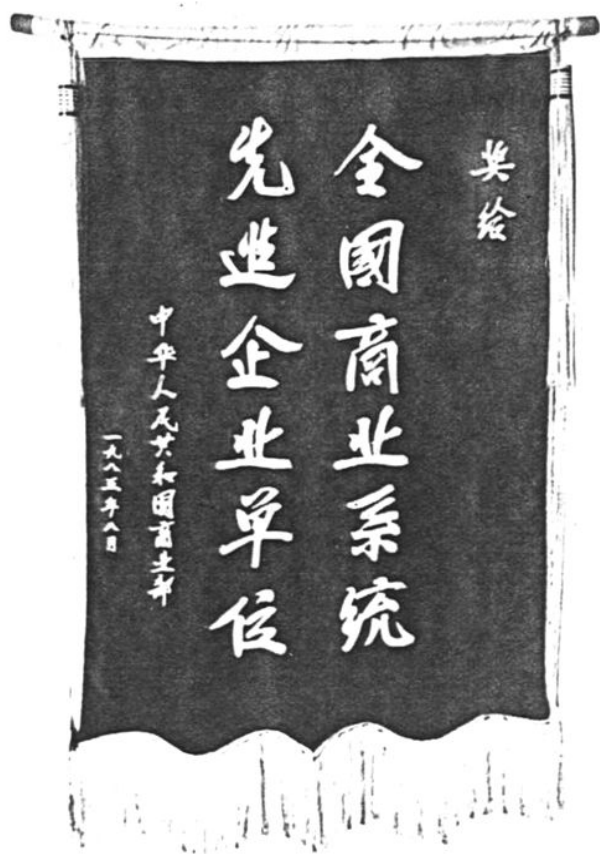 奖给
全國商业系统
先进企业单位
中华人民共和国商业部
一九八五年八月